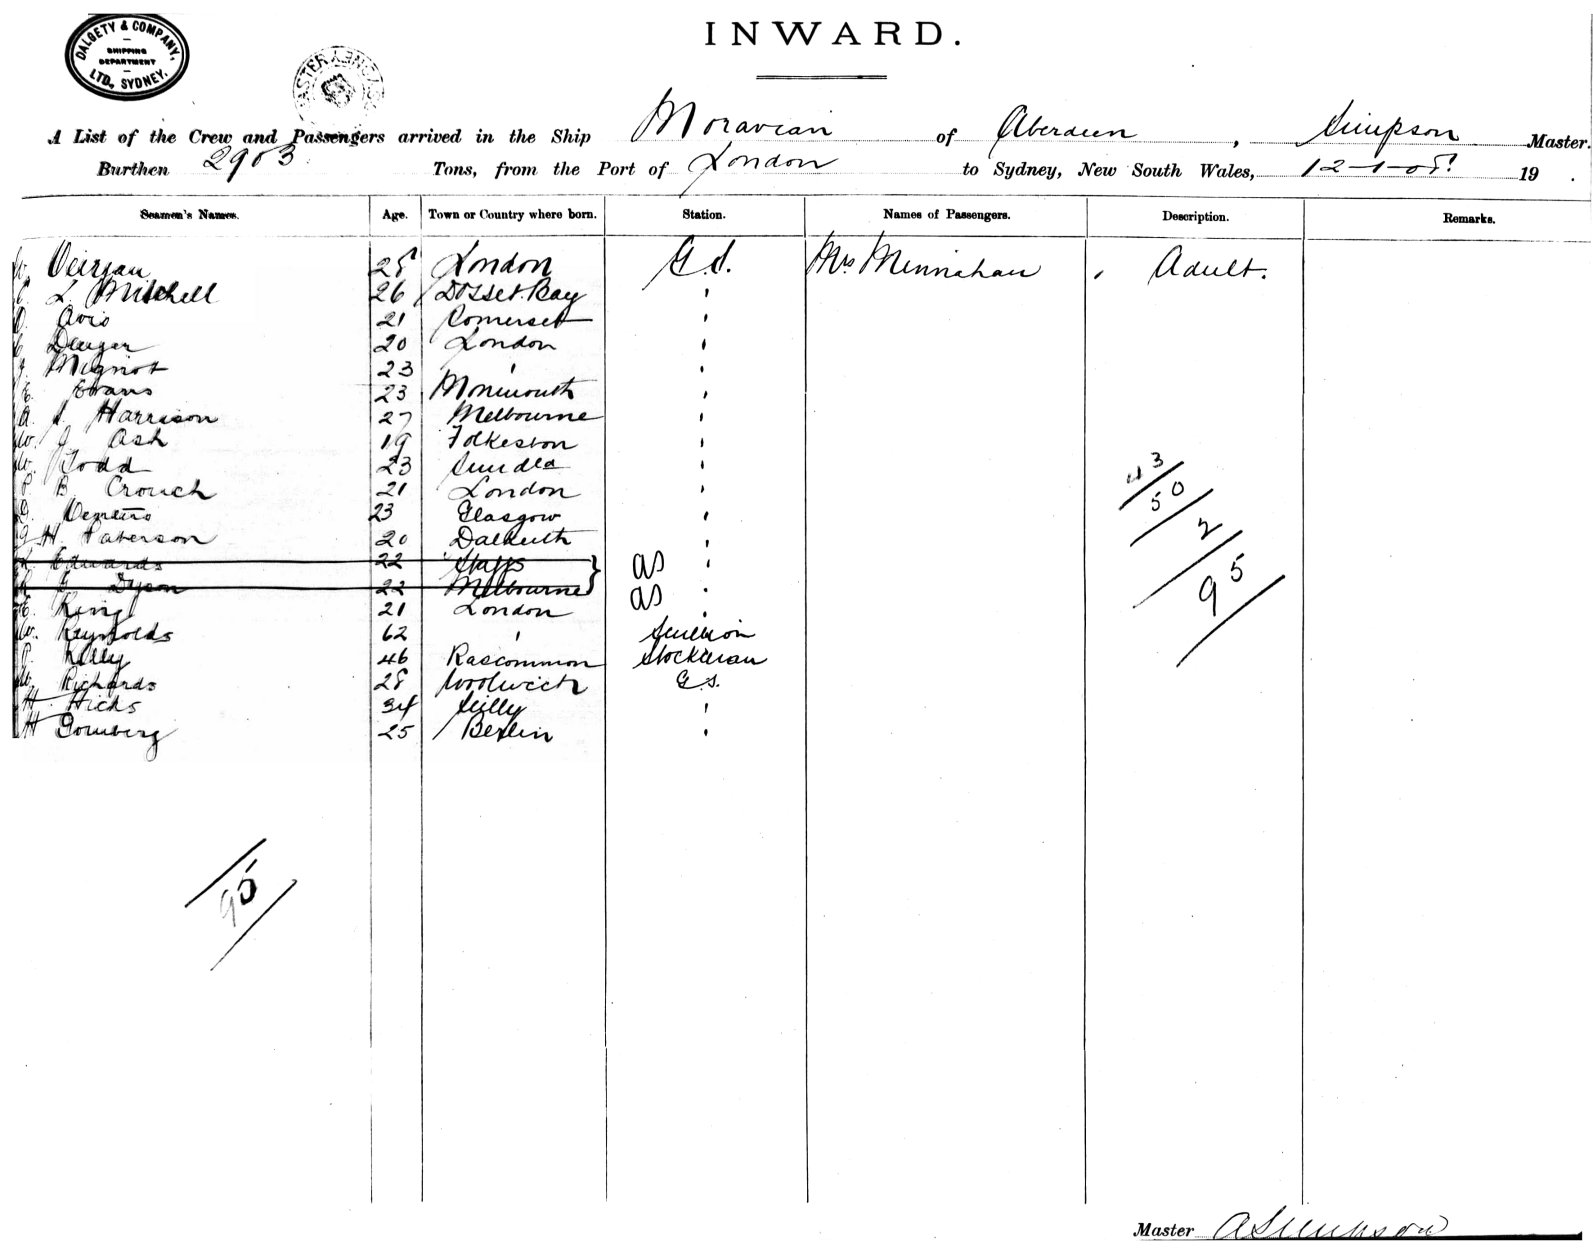 DALGETY & COMPANY, LTD, SYDNEY.
SHIPPING DEPARTMENT
INWARD.
A List of the Crew and Passengers arrived in the Ship Moravian of Aberdeen, Simpson Master.
Burthen 2903 Tons, from the Port of London to Sydney, New South Wales, 12-1-05 19 .
Seamen's Names. Age. Town or Country where born. Station. Names of Passengers. Description. Remarks.
28 London G.S. Mrs Minnahan , Adult.
L. Mitchell 26 Dosset Bay '
Avis 21 Somerset '
20 London '
Mignot 23 ' '
E. Evans 23 Monmouth '
A. Harrison 27 Melbourne '
W. J Ash 19 Folkeston '
W. Todd 23 '
P. B Crouch 21 London '
23 Glasgow '
G H. Paterson 20 Dalkeith '
Edwards 22 Staffs as '
G Dyson 22 Melbourne as '
E. King 21 London '
W. Reynolds 62 '
P. Kelly 46 Roscommon
W. Richards 28 Woolwich G.S.
H. Hicks 34 Scilly '
H 25 Berlin '
43
50
2
95
95
Master A Simpson